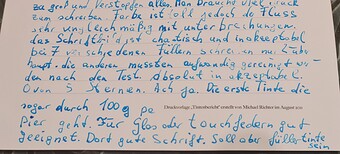 zu groß und verstopfen alles. Man brauche viel Druck
zum schreiben. Farbe ist toll jedoch do Fluss
sehr ungleichmäßig mit unterbrechungen.
das Schriftbild ist chaotisch und inakzeptabel
bei 7 verschiedenen. Füllern schreiben nur 1 über
haupt. die anderen mussten aufwändig gereinigt wer
den nach den Test. Absolut inakzeptabel.
0 von 5 Sternen. Ach ja. Die erste Tinte die
sogar durch 100g pa
Druckvorlage „Tintenbericht" erstellt von Michael Richter im August
pier geht. Für Glas oder touchfedern gut
geeignet. Dort gute Schrift. Soll aber fülltinte
sein